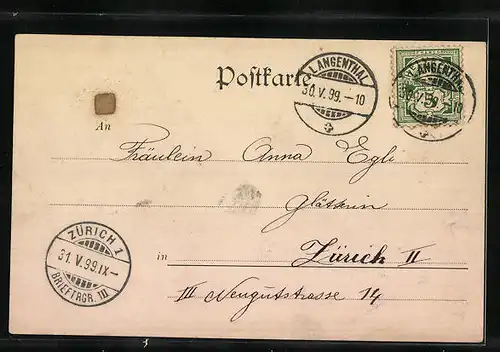 Postkarte
LANGENTHAL
30.V.99.-10
LANGENTHAL
10
An
Fräulein Anna Egli
Glätterin
ZÜRICH 1
31.V.99.IX-
BRIEFTRGR. III
in Zürich II
III Neugutstrasse 14